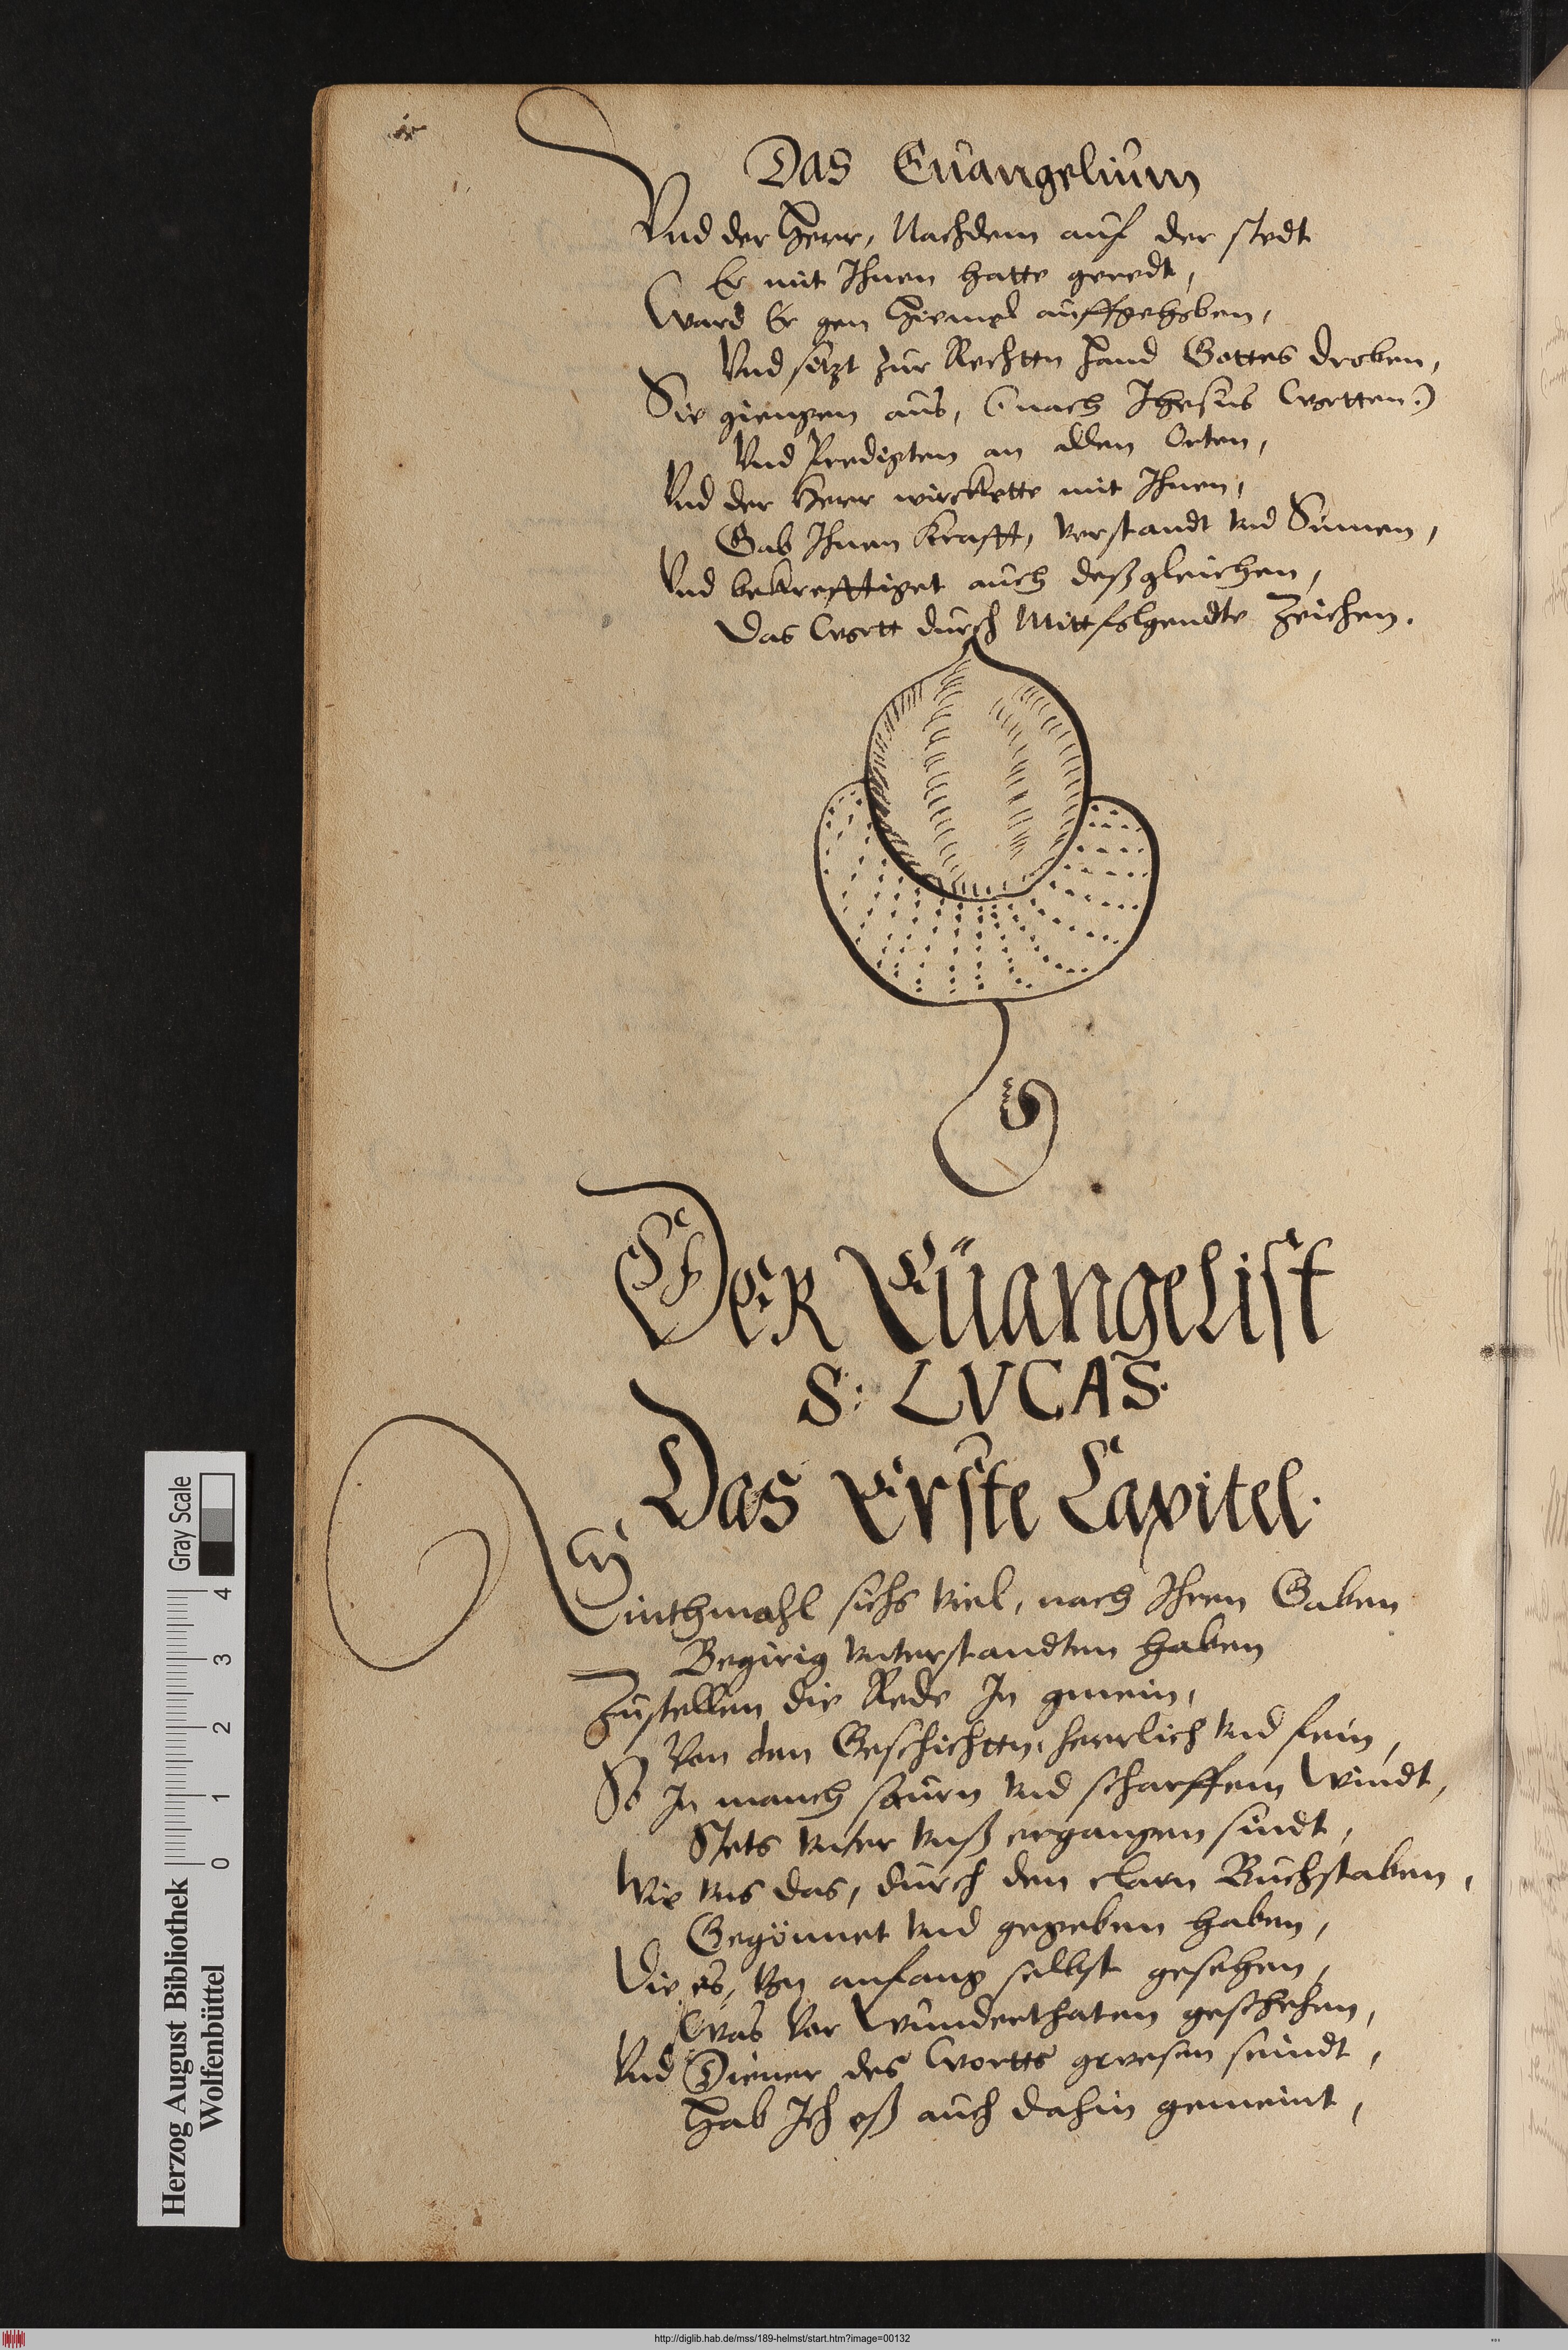 Das Euangelium
Vnd der Herr, Nachdem auf der stedt
Er mit Ihnen hatte geredt,
Ward Er gen Hiemel auffgehoben,
Vnd sitzt zur Rechten Hand Gottes droben,
Sie giengen aus, (nach Ihesus Wortten:)
Vnd Predigten an allen Orten,
Vnd der Herr wirckette mit Ihnen,
Gab Ihnen Krafft, verstandt vnd Sinnen,
Vnd bekrefftiget auch deßgleichen,
Das Wortt durch Mittfolgendte Zeichen.
Der Euangelist
S: LVCAS.
Das Erste Capitel.
Sinthmahl sichs viel, nach Ihren Gaben
Begirig vnterstandten haben
Zustellen die Rede In gmein,
Von den Geschichten, herrlich vnd fein,
So In manch saurn vnd scharffem Windt,
Stets vnter vnß ergangen sindt,
Wie vns das, durch den clarn Buchstaben,
Gegönnet vnd gegeben haben,
Die es, von anfang selbst gesehen,
Was vor Wunderthaten geschehen,
Vnd Diener des Wortts gewesen seindt,
Hab Ich eß auch dahin gemeint,
Herzog August Bibliothek
Wolfenbüttel
0 1 2 3 4
Gray Scale
http://diglib.hab.de/mss/189-helmst/start.htm?image=00132